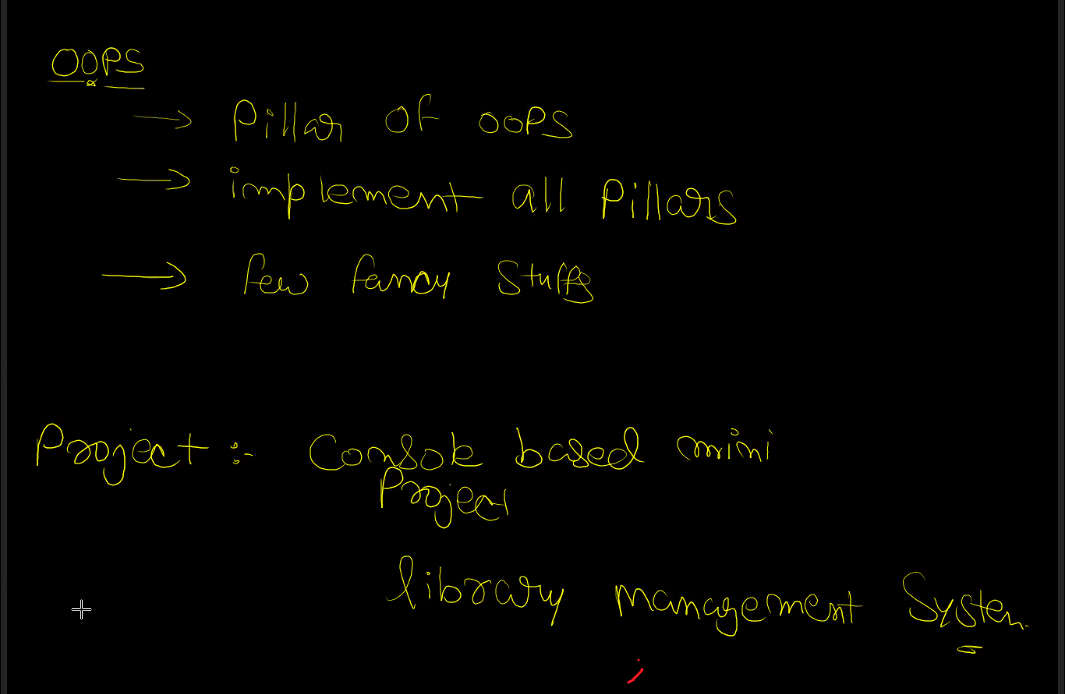 OOPS
→ Pillar of OOPS
→ implement all Pillars
→ few fancy Stuffs
Project :- Console based mini
Project
library management System